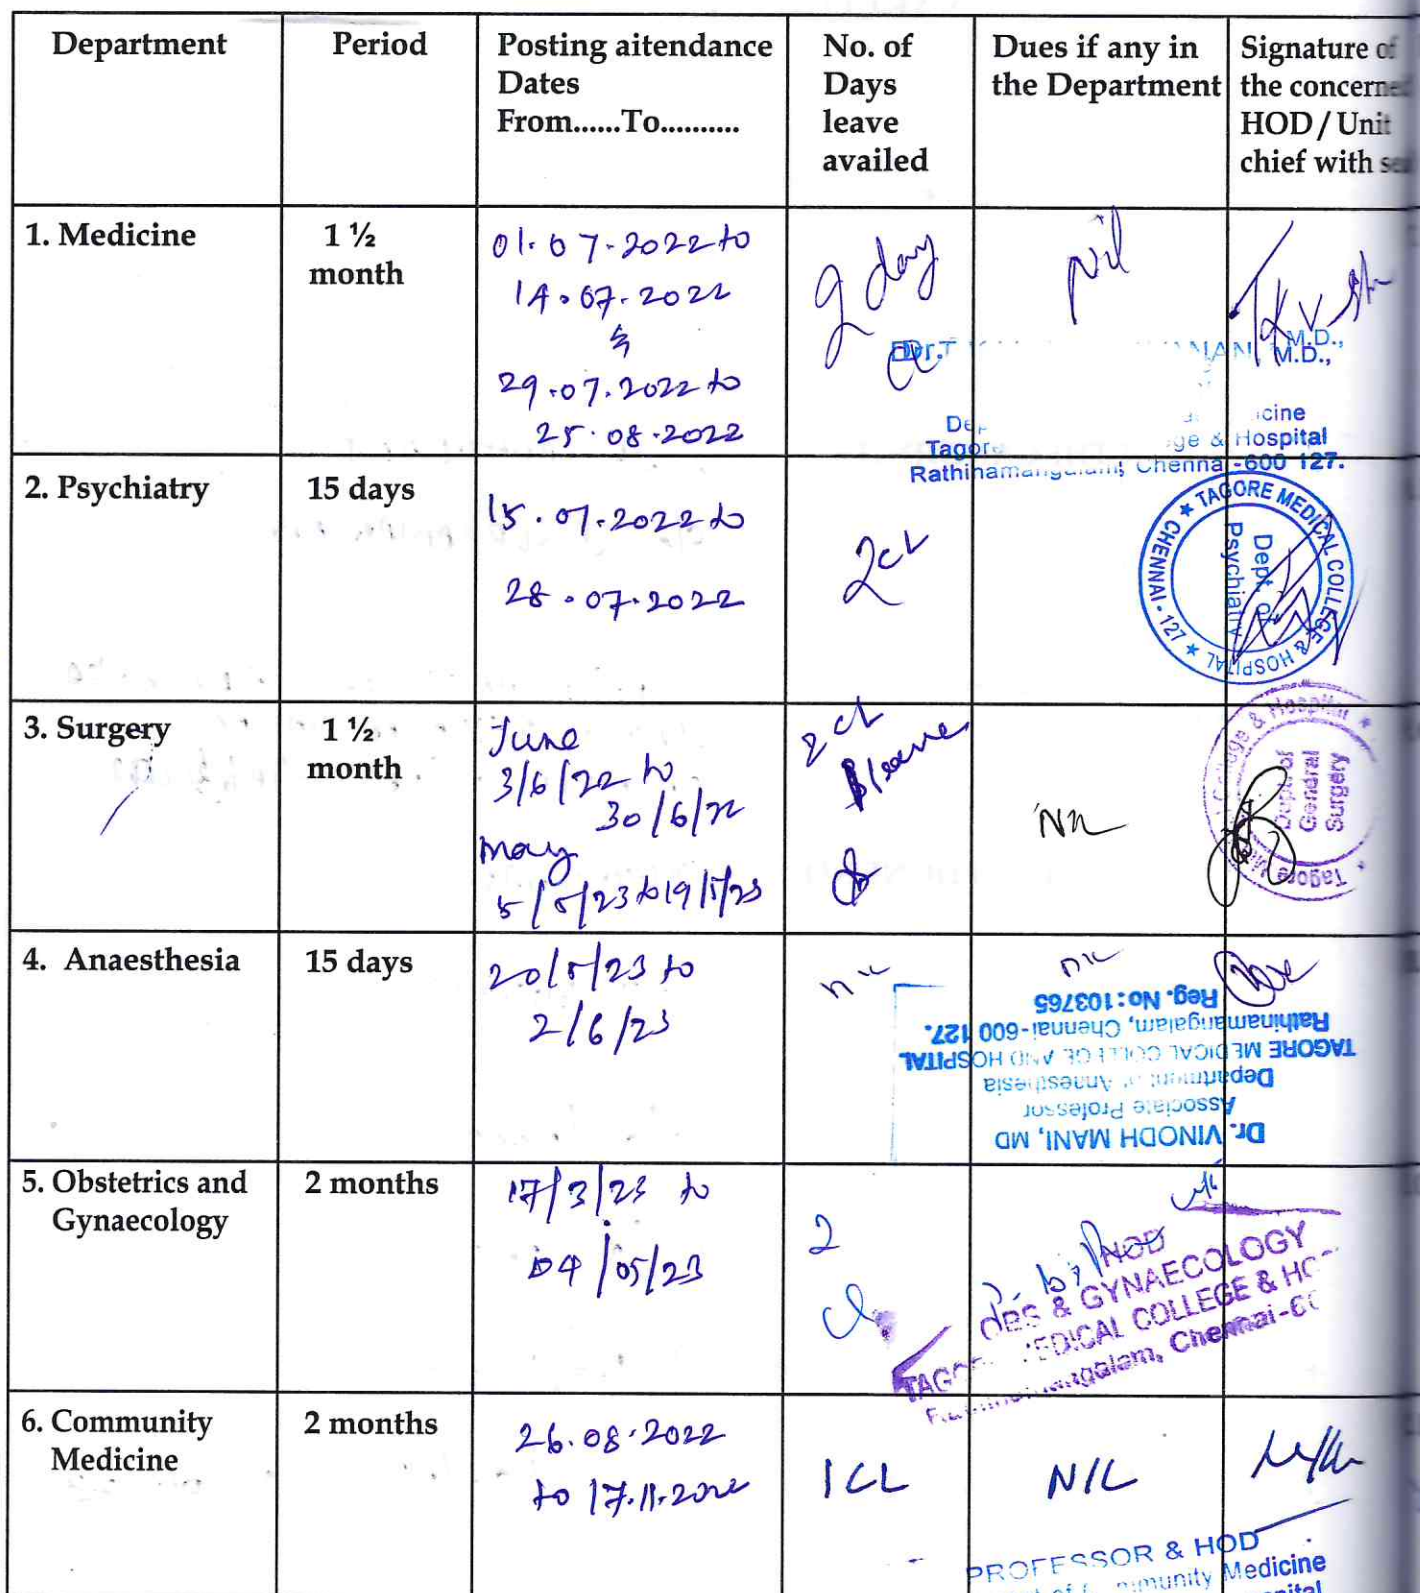 Department
Period
Posting aitendance
Dates
From......To..........
No. of
Days
leave
availed
Dues if any in
the Department
Signature of
the concerned
HOD / Unit
chief with
1. Medicine
1 ½
month
01.07.2022 to
14.07.2022
&
29.07.2022 to
25.08.2022
2 day
nil
Dr.T
M.D.,
M.D.,
cine
Tagore
ge & Hospital
Rathinamangalam, Chennai -600 127.
2. Psychiatry
15 days
15.07.2022 to
28.07.2022
2 CL
TAGORE MEDICAL COLLEGE & HOSPITAL
CHENNAI - 127
Dept. of
Psychiatry
3. Surgery
1 ½
month
June
3/6/22 to
30/6/22
May
5/5/23 to 19/5/23
2 CL
leave
Nil
Tagore
College & Hospital
Dept. of
General
Surgery
4. Anaesthesia
15 days
20/5/23 to
2/6/23
nil
nil
Dr. VINODH MANI, MD
Associate Professor
Department of Anaesthesia
TAGORE MEDICAL COLLEGE AND HOSPITAL
Rathinamangalam, Chennai-600 127.
Reg. No: 103765
5. Obstetrics and
Gynaecology
2 months
17/3/23 to
04/05/23
2
CL
HOD
OBS & GYNAECOLOGY
MEDICAL COLLEGE & HO
Chennai-
6. Community
Medicine
2 months
26.08.2022
to 17.11.2022
1 CL
NIL
PROFESSOR & HOD
Community Medicine